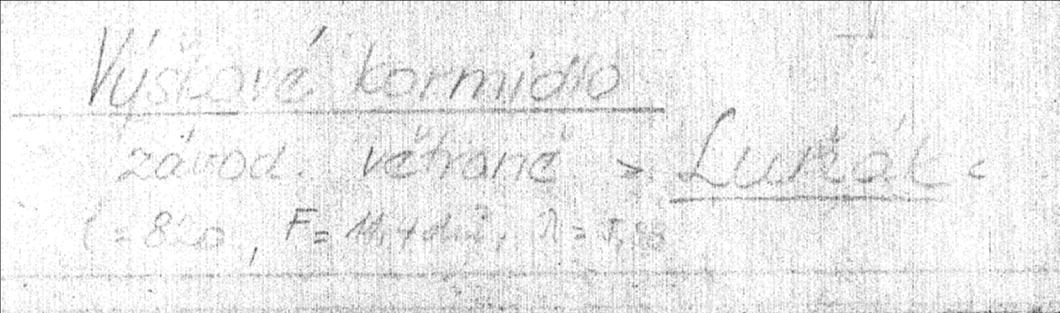 Výškové kormidlo
závod. větroně > Lužák <
l = 820, F = 11,4 dm², λ = 5,88